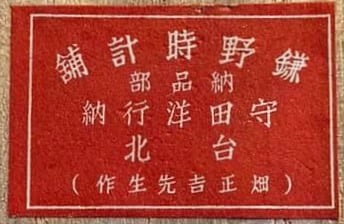 鎌野時計舖
納品部
守田洋行納
台北
(畑正吉先生作)